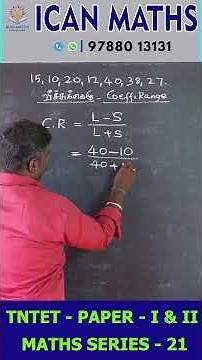 ICAN MATHS
97880 13131
15, 10, 20, 12, 40, 38, 27.
- Coeff. Range
C.R = L - S
L + S
= 40 - 10
40 +
TNTET - PAPER - I & II
MATHS SERIES - 21